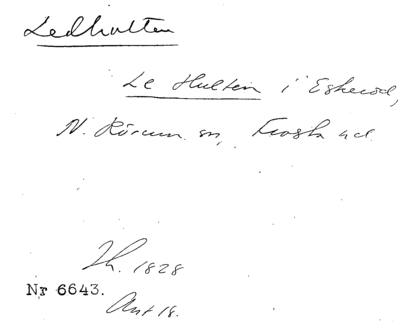 Ledhulten
Le Hulten i Eskerod,
N. Rörum sn, Frosta hd.
Th. 1828
Nr 6643.
Ant 18.